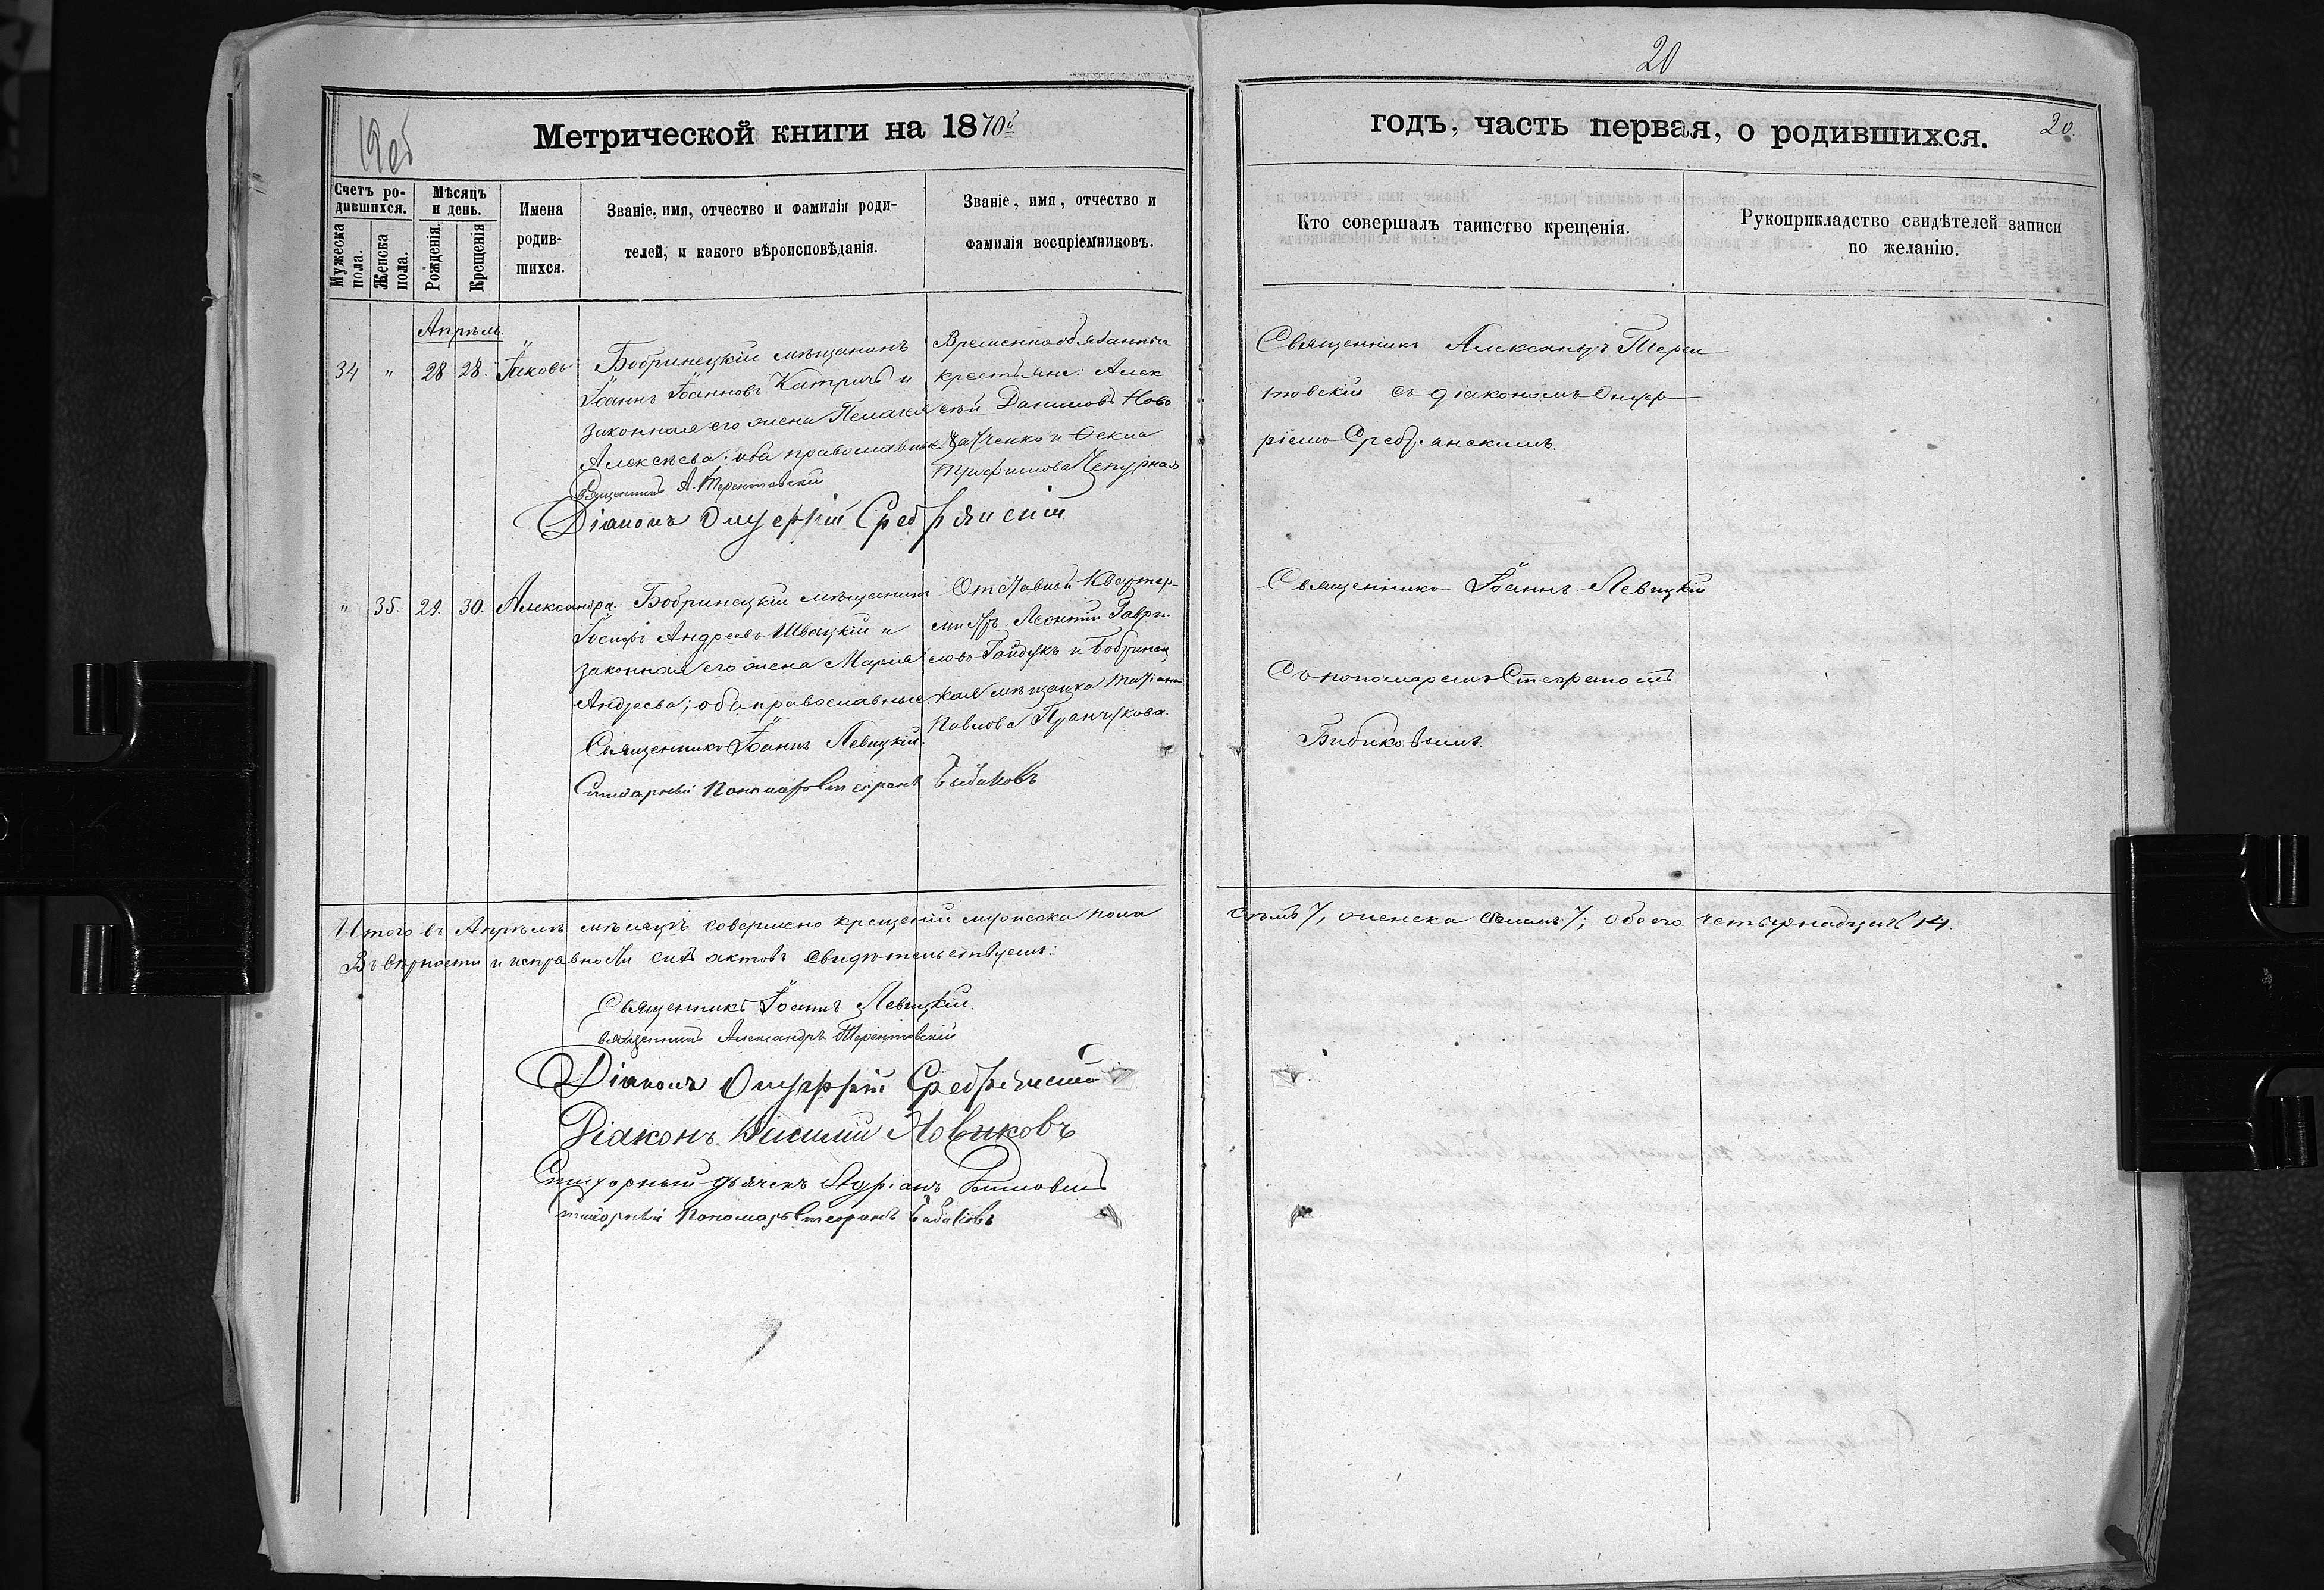 20
19 об
Метрической книги на 1870й
годъ, часть первая, о родившихся.
20.
Счетъ ро-
дившихся.
Мужеска пола.
Женска пола.
Мѣсяцъ
и день.
Рожденія.
Крещенія
Имена
родив-
шихся.
Званіе, имя, отчество и фамилія роди-
телей, и какого вѣроисповѣданія.
Званіе, имя, отчество и
фамилія воспріемниковъ.
Кто совершалъ таинство крещенія.
Рукоприкладство свидѣтелей записи
по желанію.
Апрѣль.
34 " 28 28. Іаковъ
Бобринецкій мѣщанинъ
Іоаннъ Іоанновъ Катричъ и
законная его жена Пелагея
Алексѣева; оба православные.
Священникъ А. Терентовскій
Діаконъ Онуфрій Сребрянскій
Временнообязанные
крестьяне: Алек
сѣй Даниловъ Ново
Ѳекла
Трофимова Чепурная
Священникъ Александръ Терен
товскій съ діакономъ Онуф
ріемъ Сребрянскимъ.
" 35. 29. 30. Александра.
Бобринецкій мѣщанинъ
Іосифъ Андреевъ Швацкій и
законная его жена Марія
Андреева; оба православные.
Священникъ Іоаннъ Левицкій.
Стихарный Пономарь Стефанъ Бибиковъ
Отставной Квартер-
мистръ Леонтій Гаври
ловъ Гайдукъ и Бобринец
кая мѣщанка
Павлова
Священникъ Іоаннъ Левицкій
Съ пономаремъ Стефаномъ
Бибиковымъ.
Итого въ Апрѣлѣ мѣсяцѣ совершено крещеній мужеска пола
семь 7, женска семь 7; обоего четырнадцать 14.
Въ вѣрности и исправности сихъ актовъ свидѣтельствуемъ:
Священникъ Іоаннъ Левицкій.
Священникъ Александръ Терентовскій
Діаконъ Онуфрій Сребрянскій
Діаконъ Василій Новиковъ
Стихарный дьячекъ Адріанъ
Стихарный Пономарь Стефанъ Бибиковъ